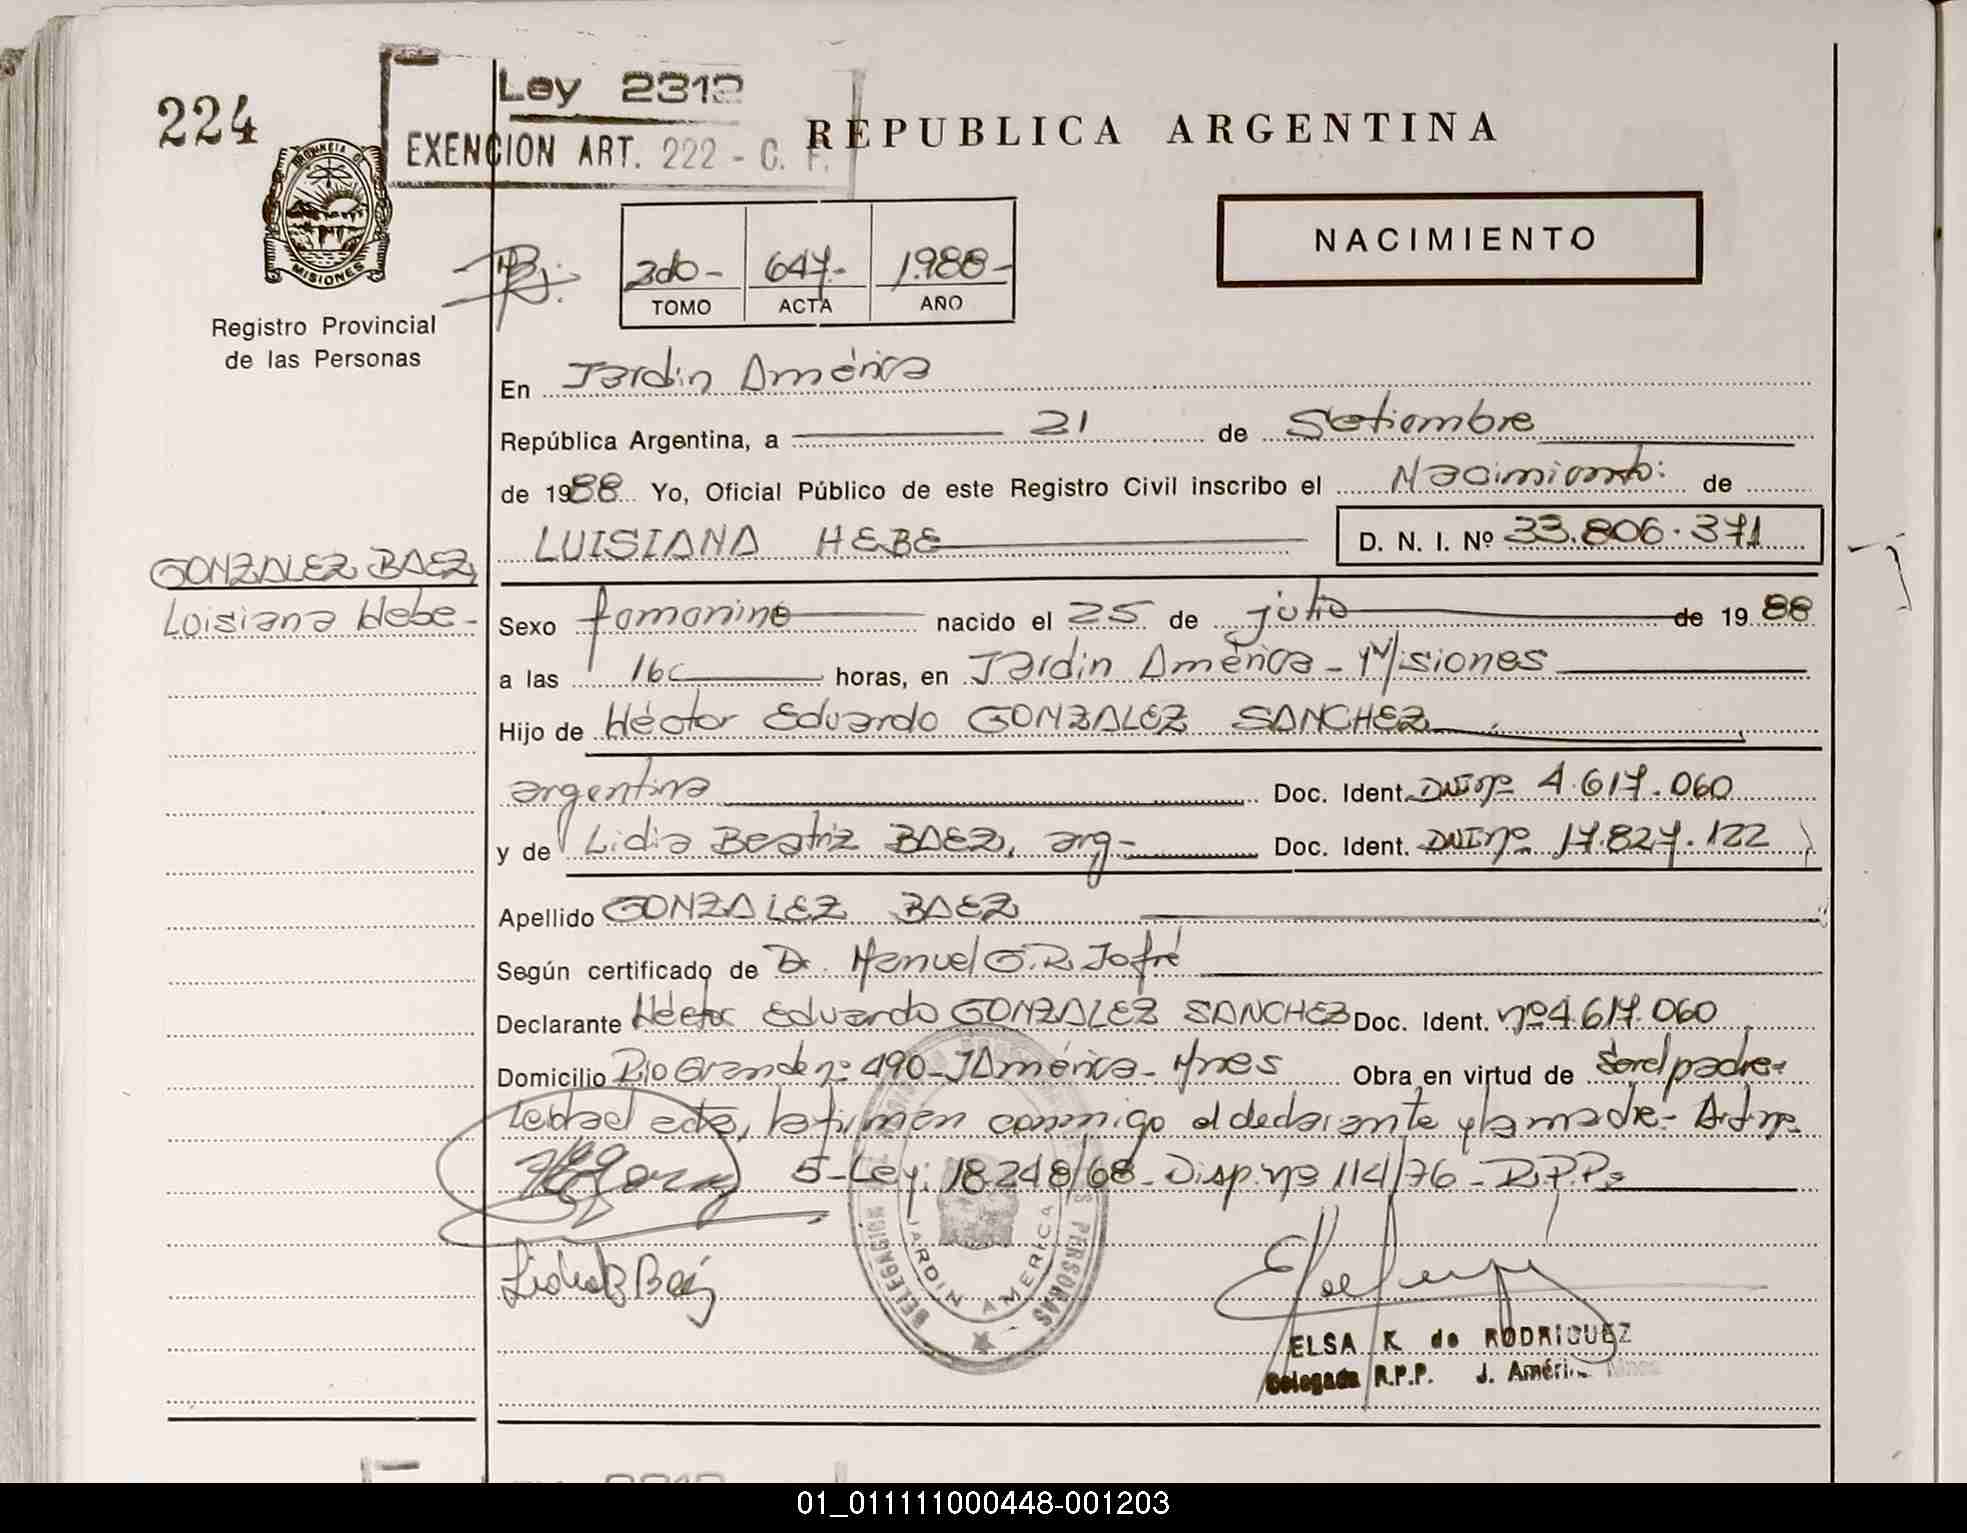 224
Ley 2312
EXENCION ART. 222 - C. F.
REPUBLICA ARGENTINA
PROVINCIA DE
MISIONES
Registro Provincial
de las Personas
2do - 647.- 1.988-
TOMO ACTA AÑO
NACIMIENTO
En Jardin América
República Argentina, a 21 de Setiembre
de 1988 Yo, Oficial Público de este Registro Civil inscribo el Nacimiento: de
LUISIANA HEBE D. N. I. Nº 33.806.371
GONZALEZ BAEZ,
Luisiana Hebe -
Sexo femenino nacido el 25 de julio de 1988
a las 16 horas, en Jardin América - Misiones
Hijo de Héctor Eduardo GONZALEZ SANCHEZ
argentina Doc. Ident. DNI nº 4.617.060
y de Lidia Beatriz BAEZ, arg- Doc. Ident. DNI nº 17.827.122
Apellido GONZALEZ BAEZ
Según certificado de Dr. Manuel G.R. Jofré
Declarante Héctor Eduardo GONZALEZ SANCHEZ Doc. Ident. nº 4.617.060
Domicilio Rio Grande nº 490 - J América - Mnes Obra en virtud de Ser el padre-
Leida el acta, la firman conmigo el declarante y la madre- Art nº
5 - Ley: 18.248/68 - Disp. nº 114/76 - R.P.P.
Lidia B Baéz
DELEGACION
PERSONAS
JARDIN AMERICA
ELSA K de RODRIGUEZ
Delegada R.P.P. J. América Mnes
01_011111000448-001203